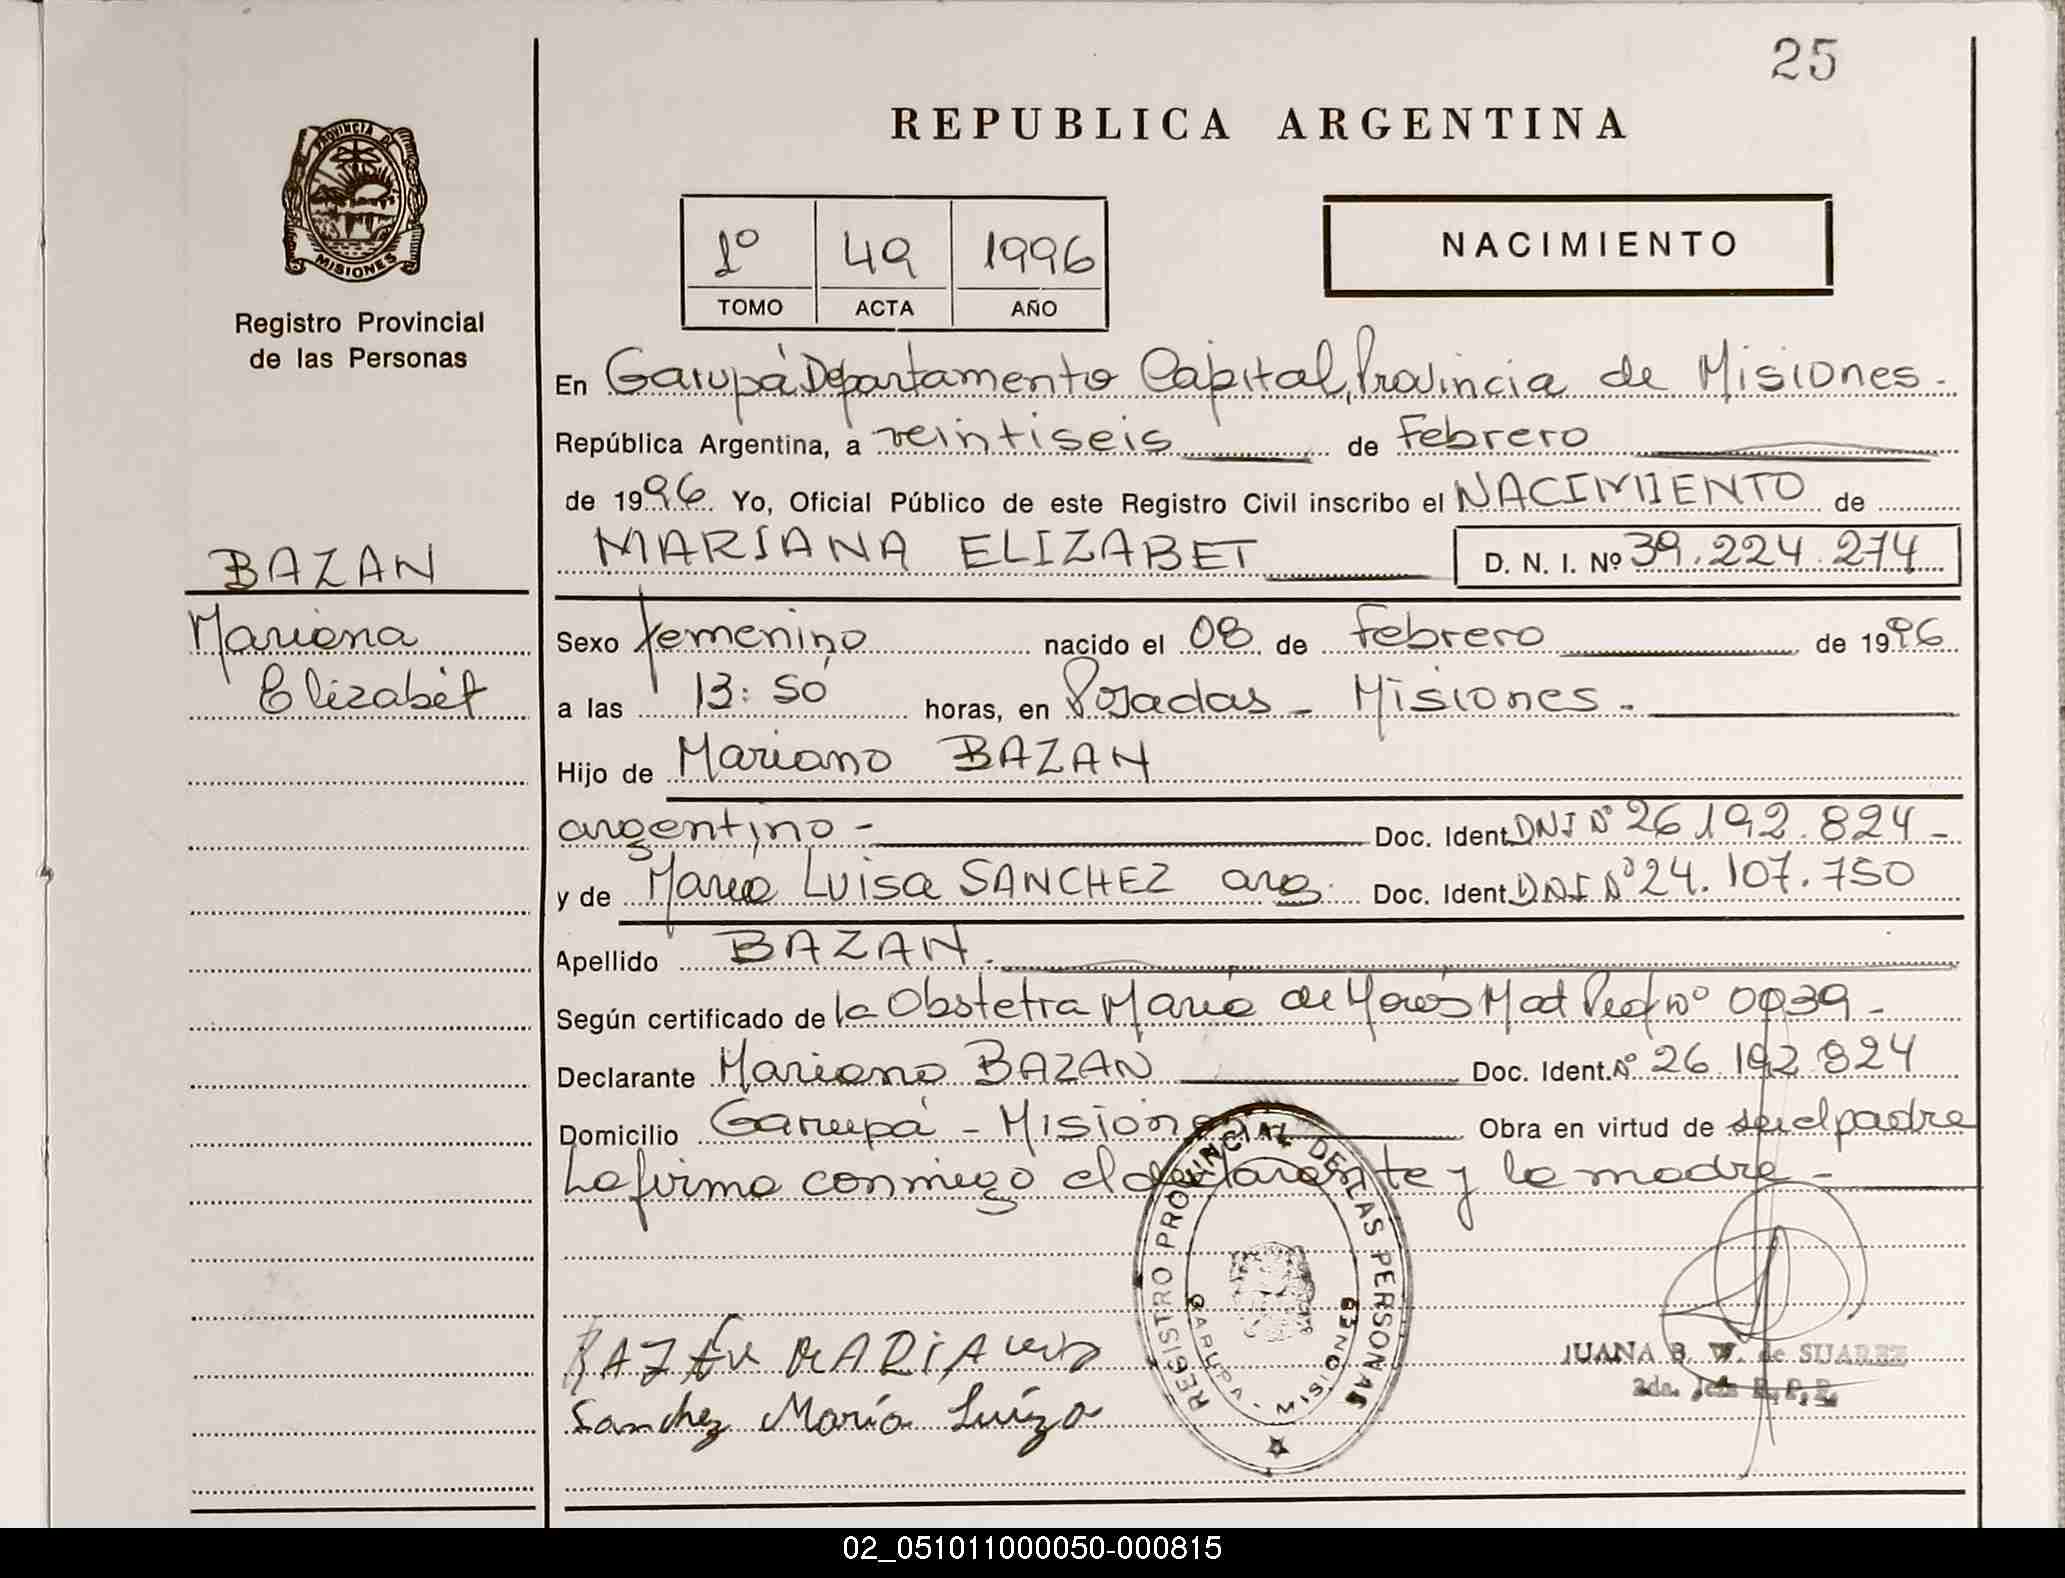 25
REPUBLICA ARGENTINA
PROVINCIA DE
MISIONES
Registro Provincial
de las Personas
1º 49 1996
TOMO ACTA AÑO
NACIMIENTO
En Garupá Departamento Capital, Provincia de Misiones -
República Argentina, a veintiseis de Febrero
de 1996 Yo, Oficial Público de este Registro Civil inscribo el NACIMIENTO de
BAZAN
MARIANA ELIZABET D. N. I. Nº 39.224.274
Mariana
Elizabét
Sexo femenino nacido el 08 de Febrero de 1996
a las 13:50 horas, en Posadas - Misiones -
Hijo de Mariano BAZAN
argentino - Doc. Ident. DNI Nº 26.192.824 -
y de Maria Luisa SANCHEZ arg. Doc. Ident. DNI Nº 24.107.750
Apellido BAZAN.
Según certificado de la Obstetra Maria de Mat Prof Nº 0939 -
Declarante Mariano BAZAN Doc. Ident. Nº 26.192.824
Domicilio Garupá - Misiones Obra en virtud de ser el padre
La firma conmigo el declarante y la madre -
REGISTRO PROVINCIAL DE LAS PERSONAS
GARUPA - MISIONES
BAZAN MARIANO
Sanchez María Luiza
JUANA B. W. de SUAREZ
2da. Jefe R.P.P.
02_051011000050-000815